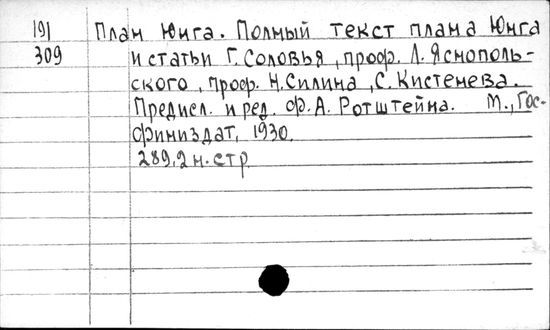 191 План Юнга. Полный текст плана Юнга
309 и статьи Г. Соловья, проф. Л. Яснополь-
ского, проф. Н. Силина, С. Кистенева.
Предисл. и ред. Ф. А. Ротштейна. М., Гос-
финиздат, 1930.
289, 2 н. стр